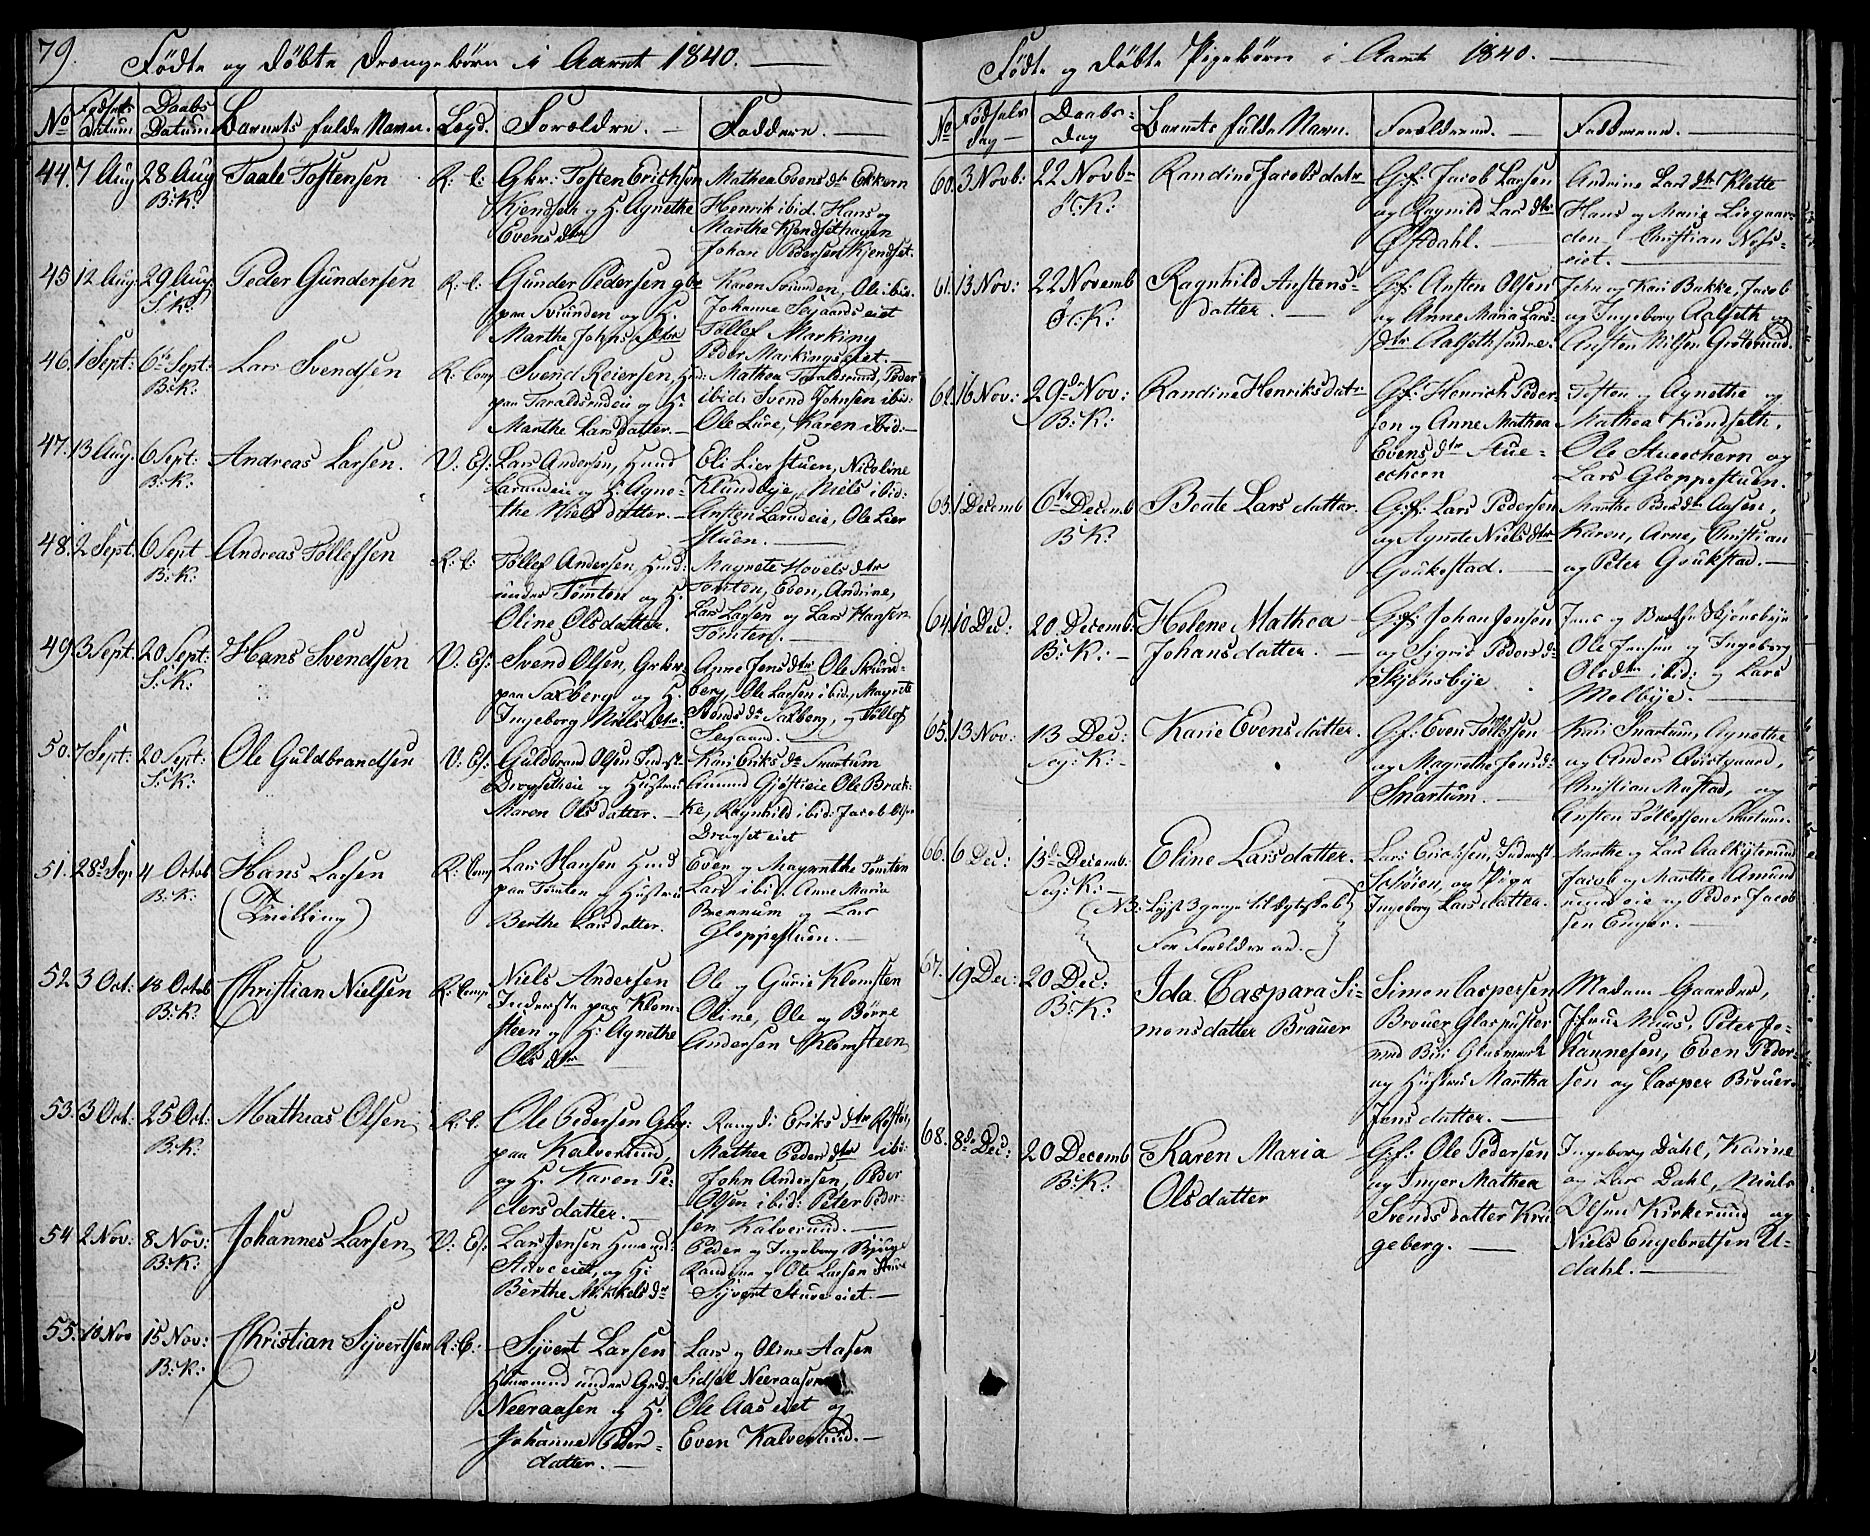 79.
Födte og döbte Drengebörn i Aaret 1840.
No Födsels Datum Daabs Datum Barnets fulde Navn. Lægd. Forældre. Faddere.
44. 7 Aug 28 Aug B:K: Taale Tostensen R: C:
Gkr: Tosten Erichsen
Kjendseth og H: Agnethe
Evens dtr
Mathea Evens dtr Ekkern
Henrik ibid. Hans og
Marthe Kjendsethagen
Johan Pedersen Kjendset.
45 12 Aug: 29 Aug: S:K: Peder Gundersen R: C:
Gunder Pedersen gbr
paa Sviinden og H:
Marthe Johnsdatter
Karen Sviinden, Ole ibid.
Johanne Segaardseiet
Tollef Marking
Peder Markingseiet.
46. 1 Sept: 6te Sept: B:K: Lars Svendsen R: Comp
Svend Reiersen, Huusm:
paa Taraldsrudeie og H:
Marthe Lars datter.
Mathea Taraldsrud, Peder
ibid: Svend Johnsen ibid:
Ole Lure, Karen ibid:
47. 13 Aug. 6 Sept: B:K: Andreas Larsen. V: Es:
Lars Andersen, Huusm
Larundeie og H: Agne-
the Niels datter.
Eli Lierstuen, Nicoline
Klundbye, Niels ibid:
Ansten Larundeie, Ole Lier
stuen.
48. 2 Sept. 6 Sept B:K: Andreas Tollefsen R: C:
Tollef Andersen, Huusm:
under Tömten og H:
Oline Olsdatter.
Magnete Hovels dtr
Tomten, Even, Andrine,
Lars Larsen og Lars Hansen
Tömten.
49. 3 Sept. 20 Sept: S:K: Hans Svendsen V: Es:
Svend Olsen, Grbr:
paa Saxberg og H:
Ingeborg Niels dtr.
Anne Jens dtr, Ole Skund-
berg, Ole Larsen ibid, Magrete
Svends dr Saxberg, og Tollef
Segaard.
50. 7 Sept: 20 Sept: S:K: Ole Guldbrandsen V: Es:
Guldbrand Olsen Inderst
Dragsetheie og Hustrue
Maren Olsdatter.
Kari Eriks dr Snartum
Gjöstieie Ole Bræk-
ke, Ragnhild ibid: Jacob Olsen
Dragset eiet
51. 28de Sep 4 Octob B:K: Hans Larsen (Tvilling) R: Comp
Lars Hansen Huusm
paa Tömten og Hustrue
Berthe Larsdatter.
Even og Magrethe Tömten
Lars ibid. Anne Maria
Brennum og Lars
Gloppestuen.
52. 3 Oct: 18 Octob B:K: Christian Nielsen R: Comp
Niels Andersen
Inderste paa Klom-
steen og H: Agnethe
Ols dtr
Ole og Gurie Klomsten
Oline, Ole og Börre
Andersen Klomsteen
53. 3 Oct: 25 Oct: B:K: Mathias Olsen, R: C:
Ole Pedersen Gbr:
paa Kalverud,
og H. Karen Pe-
dersdatter.
Rangdi Eriks dtr
Mathea Peders dtr ibi:
John Andersen, Peder
Olsen ibid: Peter Peder-
sen Kalverud.
54 2 Nov: 8 Nov: B:K: Johannes Larsen, V: Es:
Lars Jensen Huusmd:
Stuveeiet, og H:
Berthe Mikkels dr
Peder og Ingeborg Bjuge
Randine og Ole Larsen Stuve
Syvert Stuveeiet.
55. 10 Nov 15 Nov: B:K: Christian Syvertsen R: C:
Syvert Larsen
Huusmd under Grd:
Neeraasen og H:
Johanne Peder-
datter.
Lars og Oline Aasen
Sidsel Neeraasen
Ole Aaseiet og
Even Kalverud.
Födte og döbte Pigebörn i Aaret 1840.
No Födsels Dag Daabs- Dag Barnets fulde Navn. Forældrene. Fadderene.
60. 3 Novb: 22 Novbr S:K: Randine Jacobs datr
G:f: Jacob Larsen
og Ragnild Lars dtr
Östdahl.
Andrine Lars dtr Klette
Hans og Marie Liegaar-
den, Christian Nöss-
eiet.
61. 13 Nov: 22 Novemb S:K: Ragnhild Anstens-
datter.
G:f: Ansten Olsen
og Anne Maria Lars-
dtr Aalseth söndre.
John og Kari Bakke, Jacob
og Ingeborg Aalseth og
Ansten Nilsen Gröterud.
62. 16 Nov: 29de Nov: B:K: Randine Henriks datr
G:f: Henrich Peder-
sen og Anne Mathea
Evens dtr Stue-
echern
Tosten og Agnethe og
Mathea Kiendseth,
Ole Stueechern og
Lars Gloppestuen.
63. 1 Decemb 6te Decemb B:K: Beate Lars datter.
G:f: Lars Pedersen
og Agnete Niels dtr
Goukestad.
Marthe Peders dtr Aasen,
Karen, Arne, Christian
og Peter Goukstad.
64. 10 Dec: 20 Decemb: B:K: Helene Mathea
Johansdatter.
G:f: Johan Jensen
og Sigrid Peders dr
Skjönsbye
Jens og Berthe Skjönsbye
Ole Jensen og Ingeborg
Olsdtr ibid: og Lars
Melbye.
65. 13 Nov: 13 Dec: Seg:K: Karie Evens datter.
G:f: Even Tollefsen
og Magrethe Jens dr
Snartum.
Kari Snartum, Agnethe
og Anders Qvistgaard,
Christian Mustad, og
Ansten Tollefsen Snartum.
66. 6 Dec: 13de Decemb: Seg: K: Eline Larsdatter.
(NB: Lyst 3 gange til Ægteskab
For Forældrene.)
Lars Erichsen, Inderst
Schöien, og Pige
Ingeborg Larsdatter.
Marthe og Lars Aalkyterud
Jacob og Marthe Amund
rudeie og Peder Jacob
sen Enger.
67. 19 Dec: 20 Dec: B:K: Ida Caspara Si-
monsdatter Brauer
Simon Caspersen
Brouer Glaspuster
ved Biri Glasværk
og Hustrue Martha
Jens datter.
Madam Gaarder,
Jfrue Muus, Peter Jo-
hannesen, Even Peder-
sen og Casper Brouer.
68. 8de Dec: 20 Decemb B:K: Karen Maria
Olsdatter
G:f: Ole Pedersen
og Inger Mathea
Svends datter Kra
geberg.
Ingeborg Dahl, Karine
og Lars Dahl, Niels
Olsen Kirkerud og
Niels Engebretsen U-
dahl.